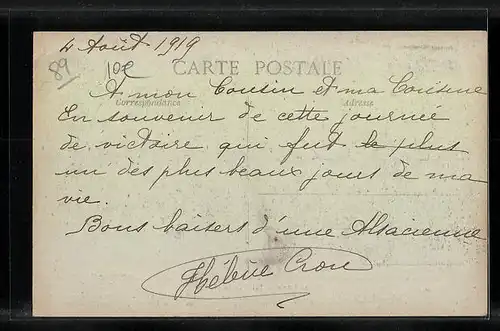 4 Août 1919
89
10€
CARTE POSTALE
A mon Cousin et ma Cousine
Correspondance
Adresse
En souvenir de cette journée
de victoire qui fut le plus
un des plus beaux jours de ma
vie.
Bons baisers d'une Alsacienne
Hélène Cron